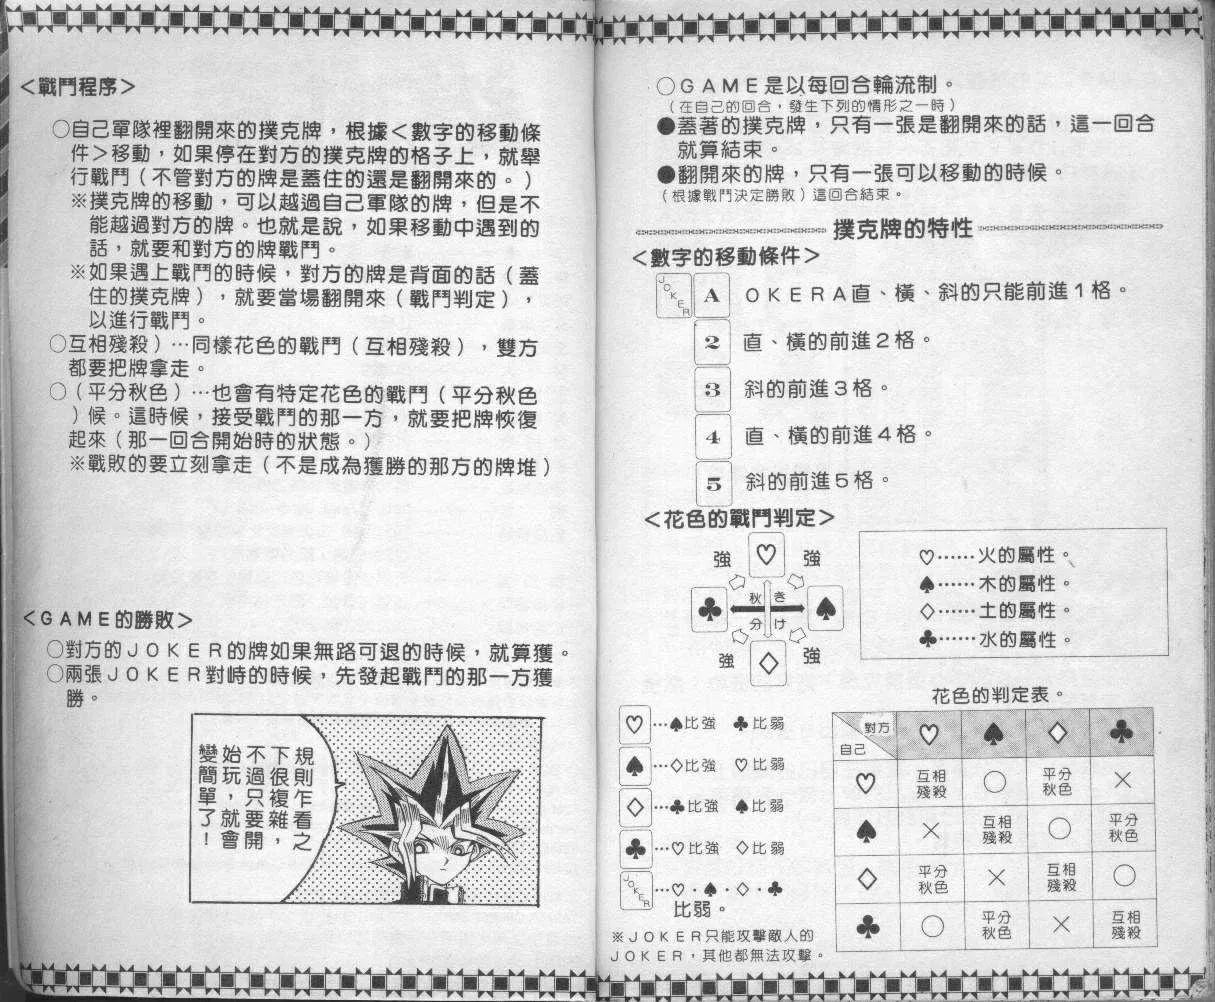 ＜戰鬥程序＞
○自己軍隊裡翻開來的撲克牌，根據＜數字的移動條
件＞移動，如果停在對方的撲克牌的格子上，就舉
行戰鬥（不管對方的牌是蓋住的還是翻開來的。）
※撲克牌的移動，可以越過自己軍隊的牌，但是不
能越過對方的牌。也就是說，如果移動中遇到的
話，就要和對方的牌戰鬥。
※如果遇上戰鬥的時候，對方的牌是背面的話（蓋
住的撲克牌），就要當場翻開來（戰鬥判定），
以進行戰鬥。
○互相殘殺）…同樣花色的戰鬥（互相殘殺），雙方
都要把牌拿走。
○（平分秋色）…也會有特定花色的戰鬥（平分秋色
）候。這時候，接受戰鬥的那一方，就要把牌恢復
起來（那一回合開始時的狀態。）
※戰敗的要立刻拿走（不是成為獲勝的那方的牌堆）
＜GAME的勝敗＞
○對方的JOKER的牌如果無路可退的時候，就算獲。
○兩張JOKER對峙的時候，先發起戰鬥的那一方獲
勝。
規則乍看之
下很複雜，
不過只要開
始玩，就會
變簡單了！
○GAME是以每回合輪流制。
（在自己的回合，發生下列的情形之一時）
●蓋著的撲克牌，只有一張是翻開來的話，這一回合
就算結束。
●翻開來的牌，只有一張可以移動的時候。
（根據戰鬥決定勝敗）這回合結束。
撲克牌的特性
＜數字的移動條件＞
JOKER A OKERA直、橫、斜的只能前進1格。
2 直、橫的前進2格。
3 斜的前進3格。
4 直、橫的前進4格。
5 斜的前進5格。
＜花色的戰鬥判定＞
強 ♡ 強
♣ 秋き分け ♠
強 ♢ 強
♡……火的屬性。
♠……木的屬性。
♢……土的屬性。
♣……水的屬性。
♡…♠比強 ♣比弱
♠…♢比強 ♡比弱
♢…♣比強 ♠比弱
♣…♡比強 ♢比弱
JOKER…♡・♠・♢・♣
比弱。
※JOKER只能攻擊敵人的
JOKER，其他都無法攻擊。
花色的判定表。
對方 自己 ♡ ♠ ♢ ♣
♡ 互相殘殺 ○ 平分秋色 ×
♠ × 互相殘殺 ○ 平分秋色
♢ 平分秋色 × 互相殘殺 ○
♣ ○ 平分秋色 × 互相殘殺